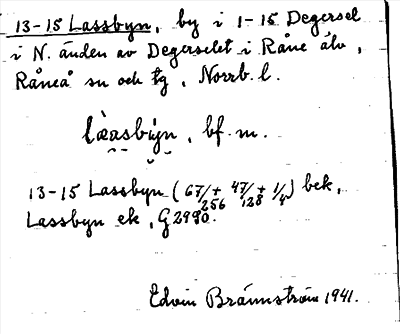 13-15 Lassbyn, by i 1-15 Degersel
i N. änden av Degerselet i Råne älv,
Råneå sn och tg, Norrb. l.
bf. m.
13-15 Lassbyn (67/256 + 47/128 + 1/4) bek,
Lassbyn ek, G 2990.
Edvin Brännström 1941.